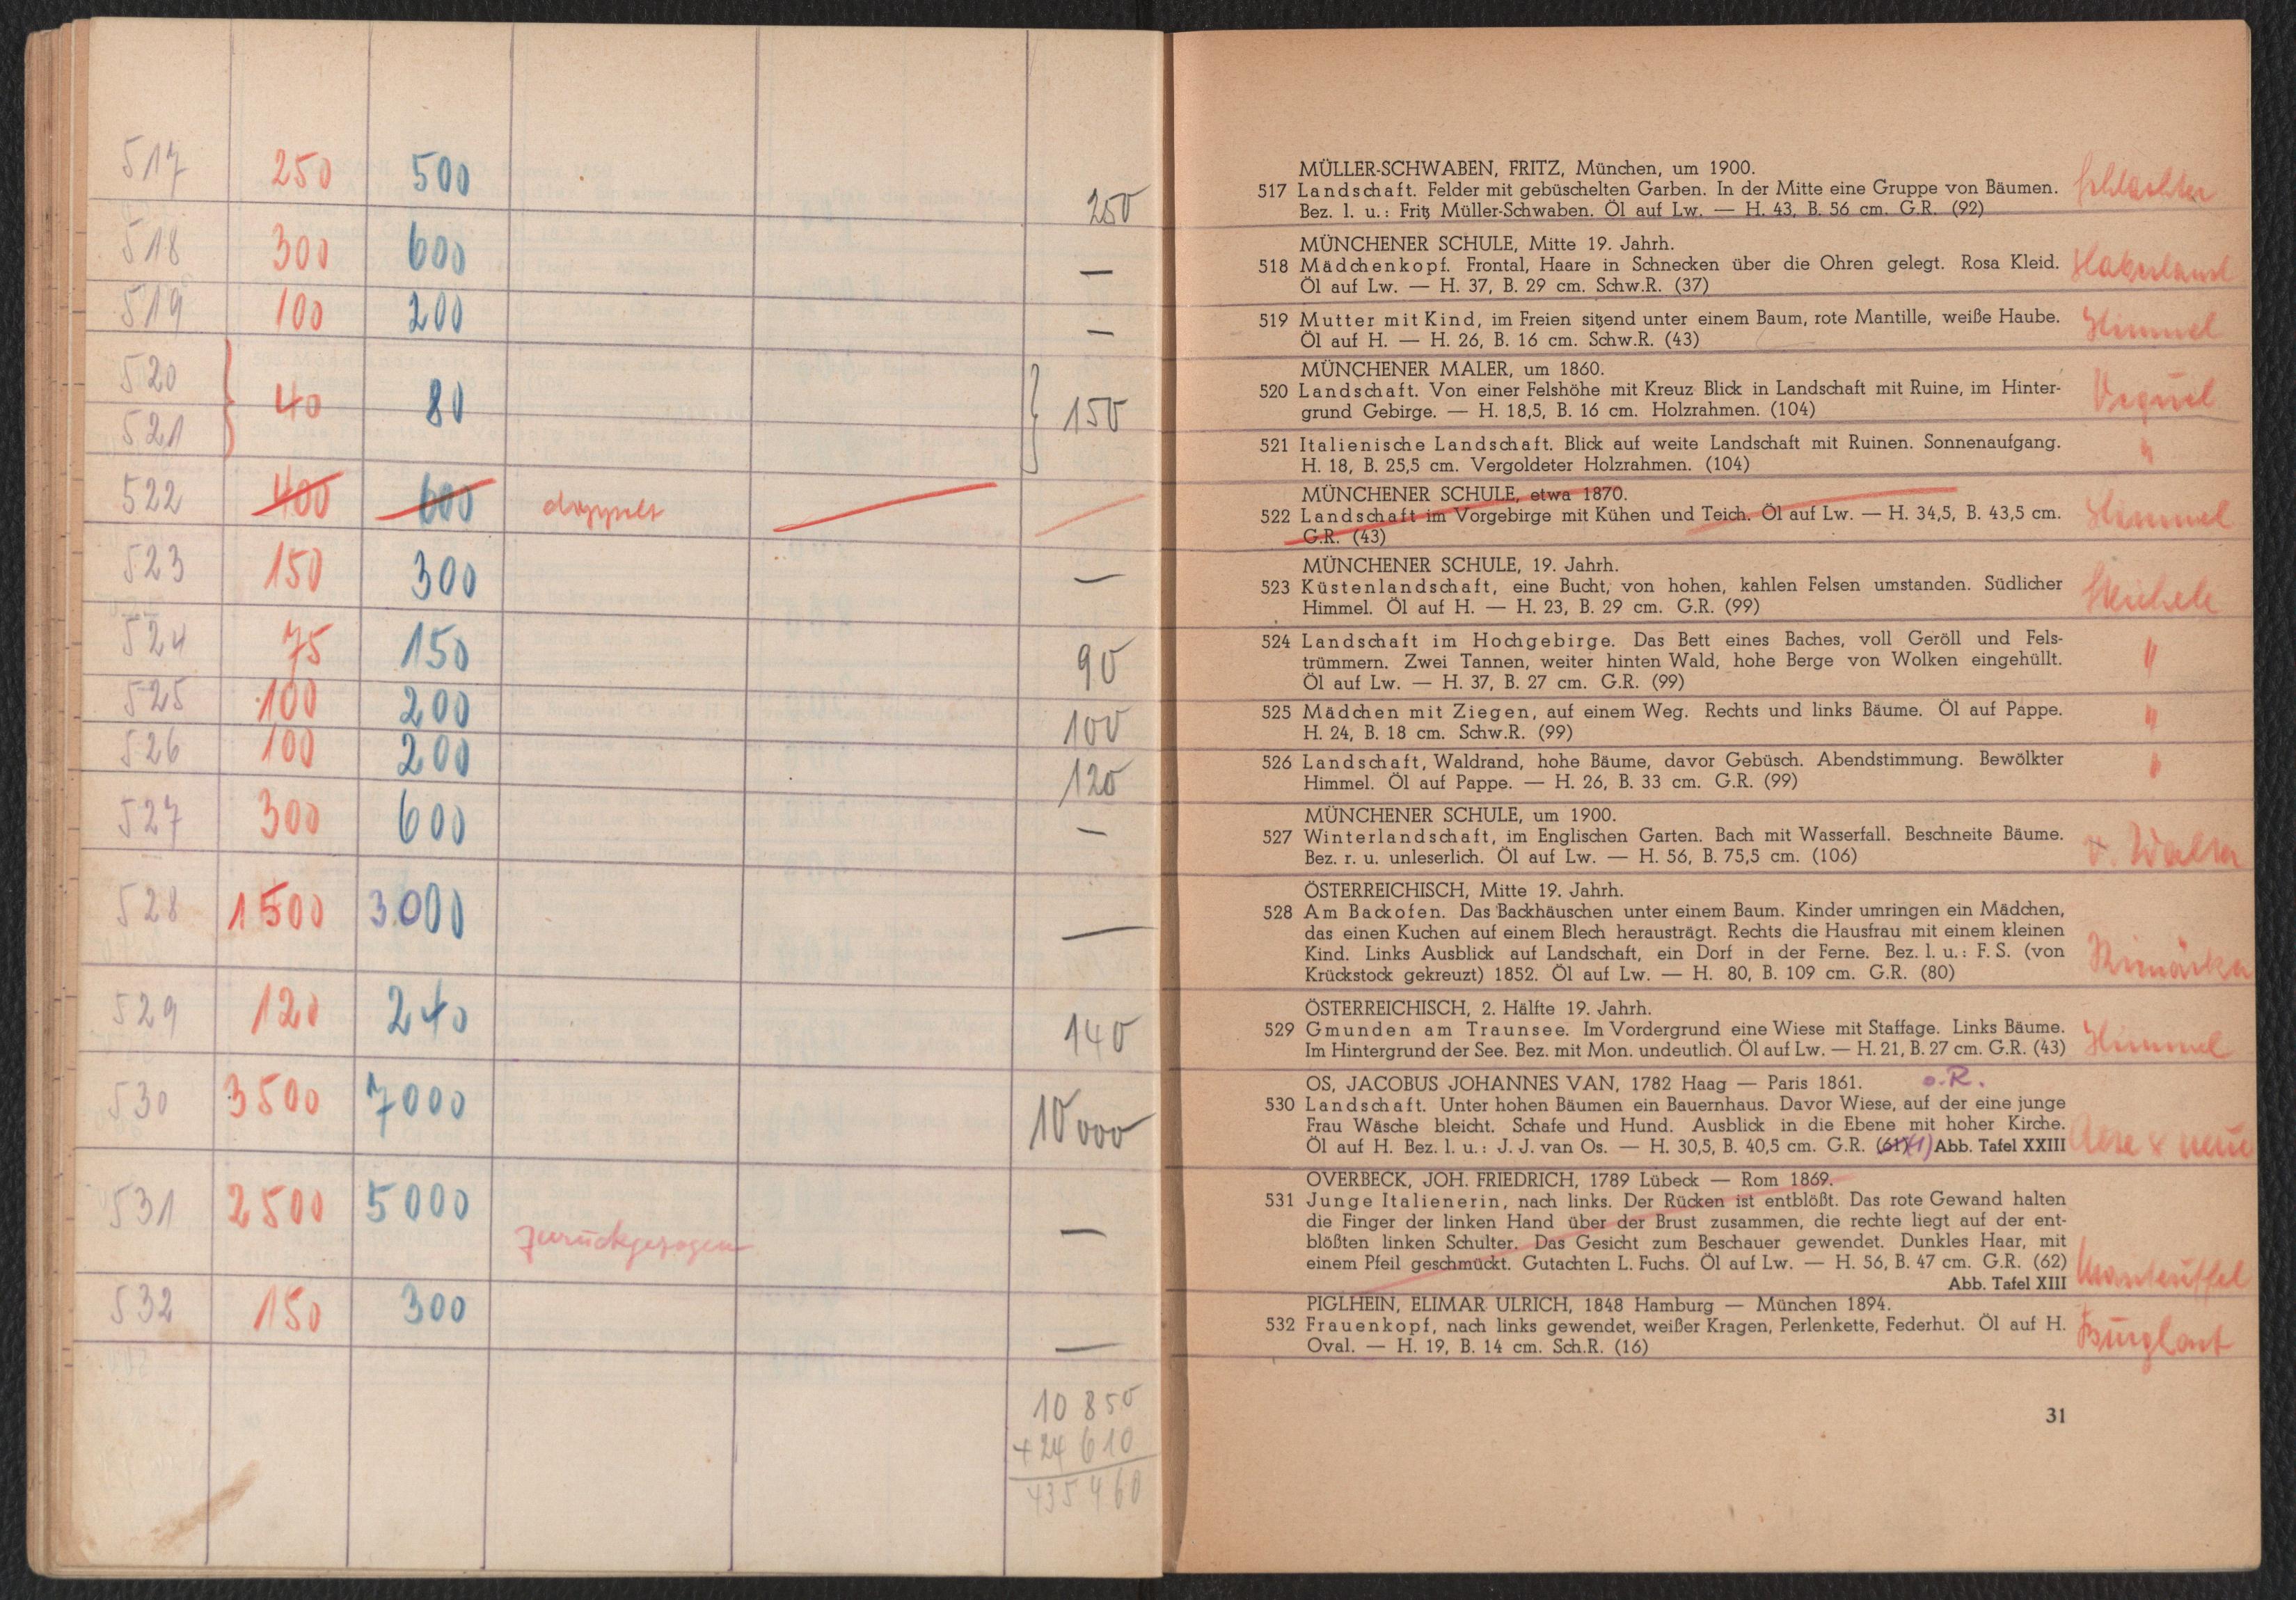 517 250 500 250
518 300 600 —
519 100 200 —
520
521 } 40 80 } 150
522 400 600 doppelt
523 150 300 —
524 75 150 90
525 100 200 100
526 100 200 120
527 300 600 —
528 1500 3000 —
529 120 240 140
530 3500 7000 10000
531 2500 5000 —
zurückgezogen
532 150 300 —
10 850
+24 610
435 460
MÜLLER-SCHWABEN, FRITZ, München, um 1900.
517 Landschaft. Felder mit gebüschelten Garben. In der Mitte eine Gruppe von Bäumen. Schlachter
Bez. l. u.: Fritz Müller-Schwaben. Öl auf Lw. — H. 43, B. 56 cm. G.R. (92)
MÜNCHENER SCHULE, Mitte 19. Jahrh.
518 Mädchenkopf. Frontal, Haare in Schnecken über die Ohren gelegt. Rosa Kleid. Haberland
Öl auf Lw. — H. 37, B. 29 cm. Schw.R. (37)
519 Mutter mit Kind, im Freien sitzend unter einem Baum, rote Mantille, weiße Haube. Himmel
Öl auf H. — H. 26, B. 16 cm. Schw.R. (43)
MÜNCHENER MALER, um 1860.
520 Landschaft. Von einer Felshöhe mit Kreuz Blick in Landschaft mit Ruine, im Hinter-
grund Gebirge. — H. 18,5, B. 16 cm. Holzrahmen. (104)
521 Italienische Landschaft. Blick auf weite Landschaft mit Ruinen. Sonnenaufgang. "
H. 18, B. 25,5 cm. Vergoldeter Holzrahmen. (104)
MÜNCHENER SCHULE, etwa 1870.
522 Landschaft im Vorgebirge mit Kühen und Teich. Öl auf Lw. — H. 34,5, B. 43,5 cm. Himmel
G.R. (43)
MÜNCHENER SCHULE, 19. Jahrh.
523 Küstenlandschaft, eine Bucht, von hohen, kahlen Felsen umstanden. Südlicher
Himmel. Öl auf H. — H. 23, B. 29 cm. G.R. (99)
524 Landschaft im Hochgebirge. Das Bett eines Baches, voll Geröll und Fels- "
trümmern. Zwei Tannen, weiter hinten Wald, hohe Berge von Wolken eingehüllt.
Öl auf Lw. — H. 37, B. 27 cm. G.R. (99)
525 Mädchen mit Ziegen, auf einem Weg. Rechts und links Bäume. Öl auf Pappe. "
H. 24, B. 18 cm. Schw.R. (99)
526 Landschaft, Waldrand, hohe Bäume, davor Gebüsch. Abendstimmung. Bewölkter "
Himmel. Öl auf Pappe. — H. 26, B. 33 cm. G.R. (99)
MÜNCHENER SCHULE, um 1900.
527 Winterlandschaft, im Englischen Garten. Bach mit Wasserfall. Beschneite Bäume.
Bez. r. u. unleserlich. Öl auf Lw. — H. 56, B. 75,5 cm. (106)
ÖSTERREICHISCH, Mitte 19. Jahrh.
528 Am Backofen. Das Backhäuschen unter einem Baum. Kinder umringen ein Mädchen,
das einen Kuchen auf einem Blech herausträgt. Rechts die Hausfrau mit einem kleinen
Kind. Links Ausblick auf Landschaft, ein Dorf in der Ferne. Bez. l. u.: F. S. (von
Krückstock gekreuzt) 1852. Öl auf Lw. — H. 80, B. 109 cm. G.R. (80)
ÖSTERREICHISCH, 2. Hälfte 19. Jahrh.
529 Gmunden am Traunsee. Im Vordergrund eine Wiese mit Staffage. Links Bäume. Himmel
Im Hintergrund der See. Bez. mit Mon. undeutlich. Öl auf Lw. — H. 21, B. 27 cm. G.R. (43)
OS, JACOBUS JOHANNES VAN, 1782 Haag — Paris 1861. o.R.
530 Landschaft. Unter hohen Bäumen ein Bauernhaus. Davor Wiese, auf der eine junge
Frau Wäsche bleicht. Schafe und Hund. Ausblick in die Ebene mit hoher Kirche.
Öl auf H. Bez. l. u.: J. J. van Os. — H. 30,5, B. 40,5 cm. G.R. (61) (1) Abb. Tafel XXIII
OVERBECK, JOH. FRIEDRICH, 1789 Lübeck — Rom 1869.
531 Junge Italienerin, nach links. Der Rücken ist entblößt. Das rote Gewand halten
die Finger der linken Hand über der Brust zusammen, die rechte liegt auf der ent-
blößten linken Schulter. Das Gesicht zum Beschauer gewendet. Dunkles Haar, mit
einem Pfeil geschmückt. Gutachten L. Fuchs. Öl auf Lw. — H. 56, B. 47 cm. G.R. (62) Manteuffel
Abb. Tafel XIII
PIGLHEIN, ELIMAR ULRICH, 1848 Hamburg — München 1894.
532 Frauenkopf, nach links gewendet, weißer Kragen, Perlenkette, Federhut. Öl auf H.
Oval. — H. 19, B. 14 cm. Sch.R. (16)
31